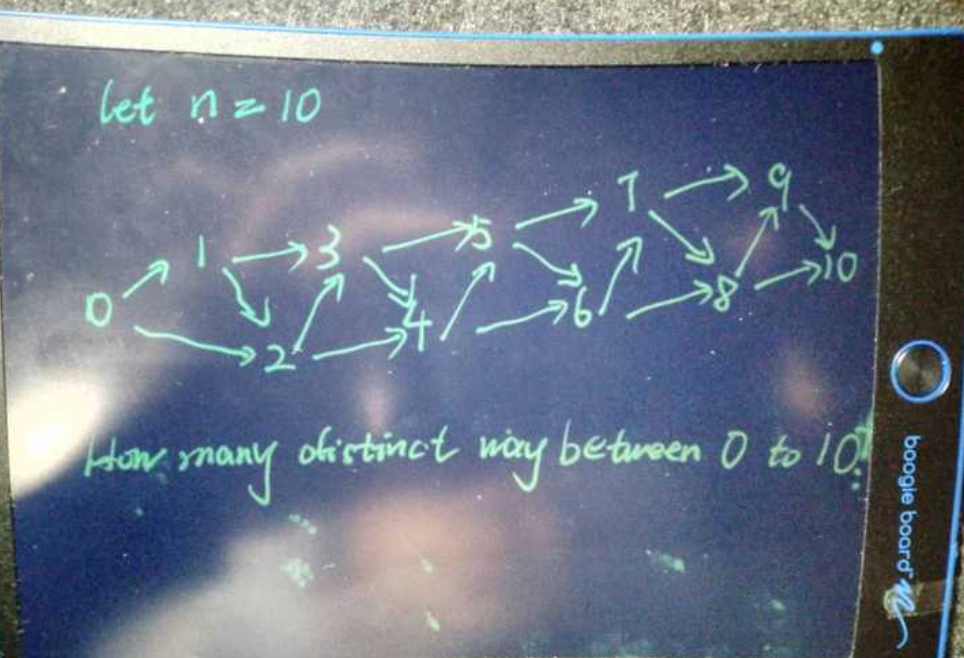 let n = 10
0 1 2 3 4 5 6 7 8 9 10
How many distinct way between 0 to 10?
boogie board